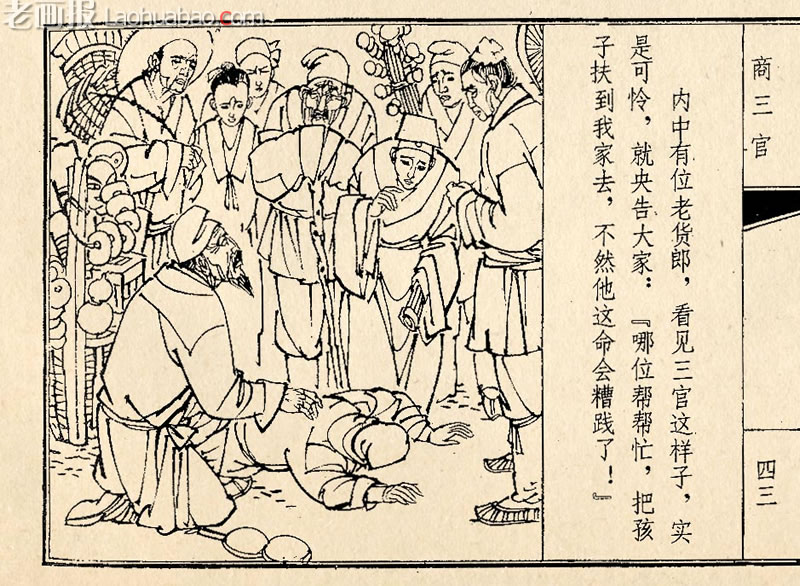 老画报
Laohuabao.com
内中有位老货郎，看见三官这样子，实
是可怜，就央告大家：『哪位帮帮忙，把孩
子扶到我家去，不然他这命会糟践了！』
商三官
四三